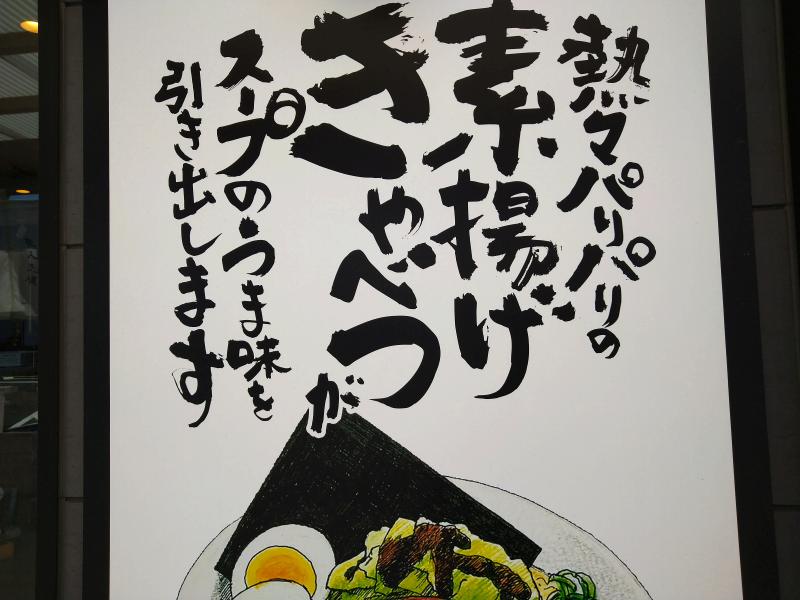 熱々パリパリの
素揚げ
きゃべつが
スープのうま味を
引き出します